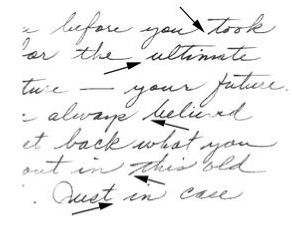 before you took
for the ultimate
ture — your future.
always believed
et back what you
out in this old
Just in case